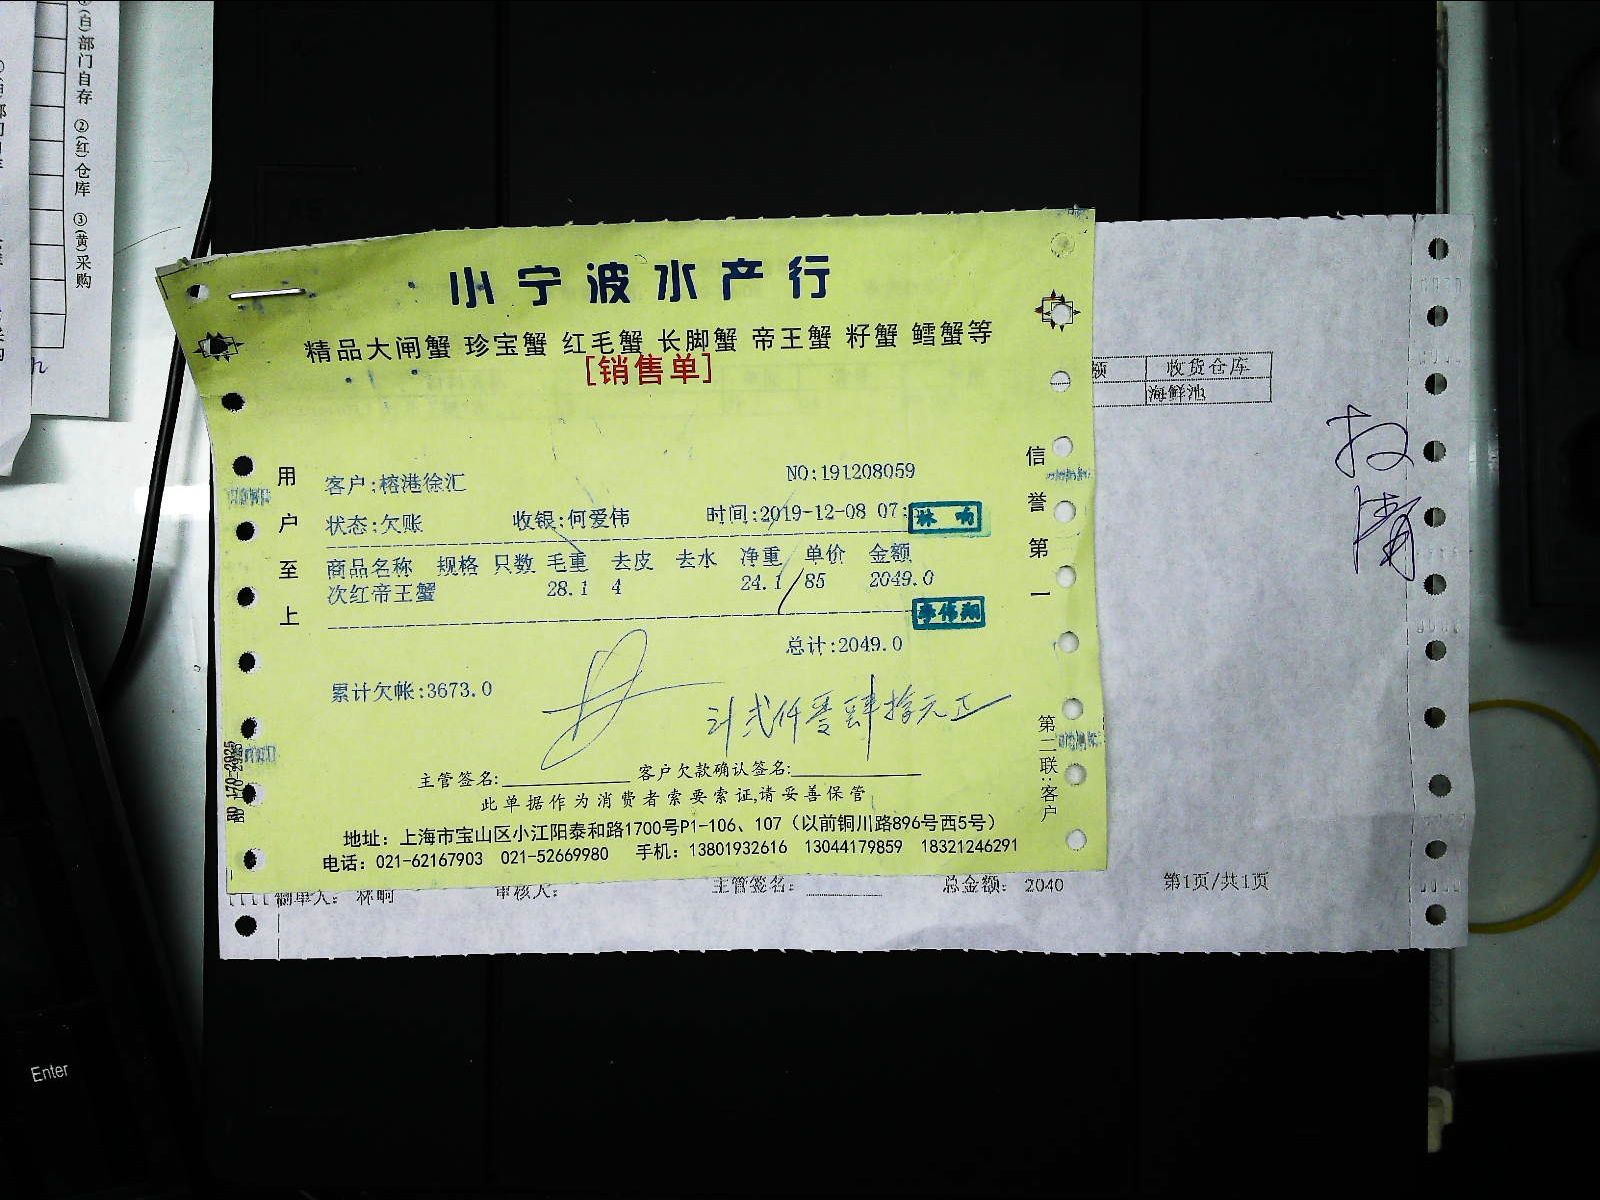 (白)部门自存 ②(红)仓库 ③(黄)采购
小宁波水产行
精品大闸蟹 珍宝蟹 红毛蟹 长脚蟹 帝王蟹 籽蟹 鳕蟹等
[销售单]
额 收货仓库
海鲜池
用户至上
信誉第一
客户:榕港徐汇 NO:191208059
状态:欠账 收银:何爱伟 时间:2019-12-08 07:
林响
商品名称 规格 只数 毛重 去皮 去水 净重 单价 金额
次红帝王蟹 28.1 4 24.1 85 2049.0
李伟翔
总计:2049.0
累计欠帐:3673.0
计贰仟零肆拾元正
第二联:客户
主管签名: 客户欠款确认签名:
此单据作为消费者索要索证,请妥善保管
地址: 上海市宝山区小江阳泰和路1700号P1-106、107（以前铜川路896号西5号）
电话: 021-62167903 021-52669980 手机: 13801932616 13044179859 18321246291
制单人: 林响 审核人: 主管签名: 总金额: 2040 第1页/共1页
Enter